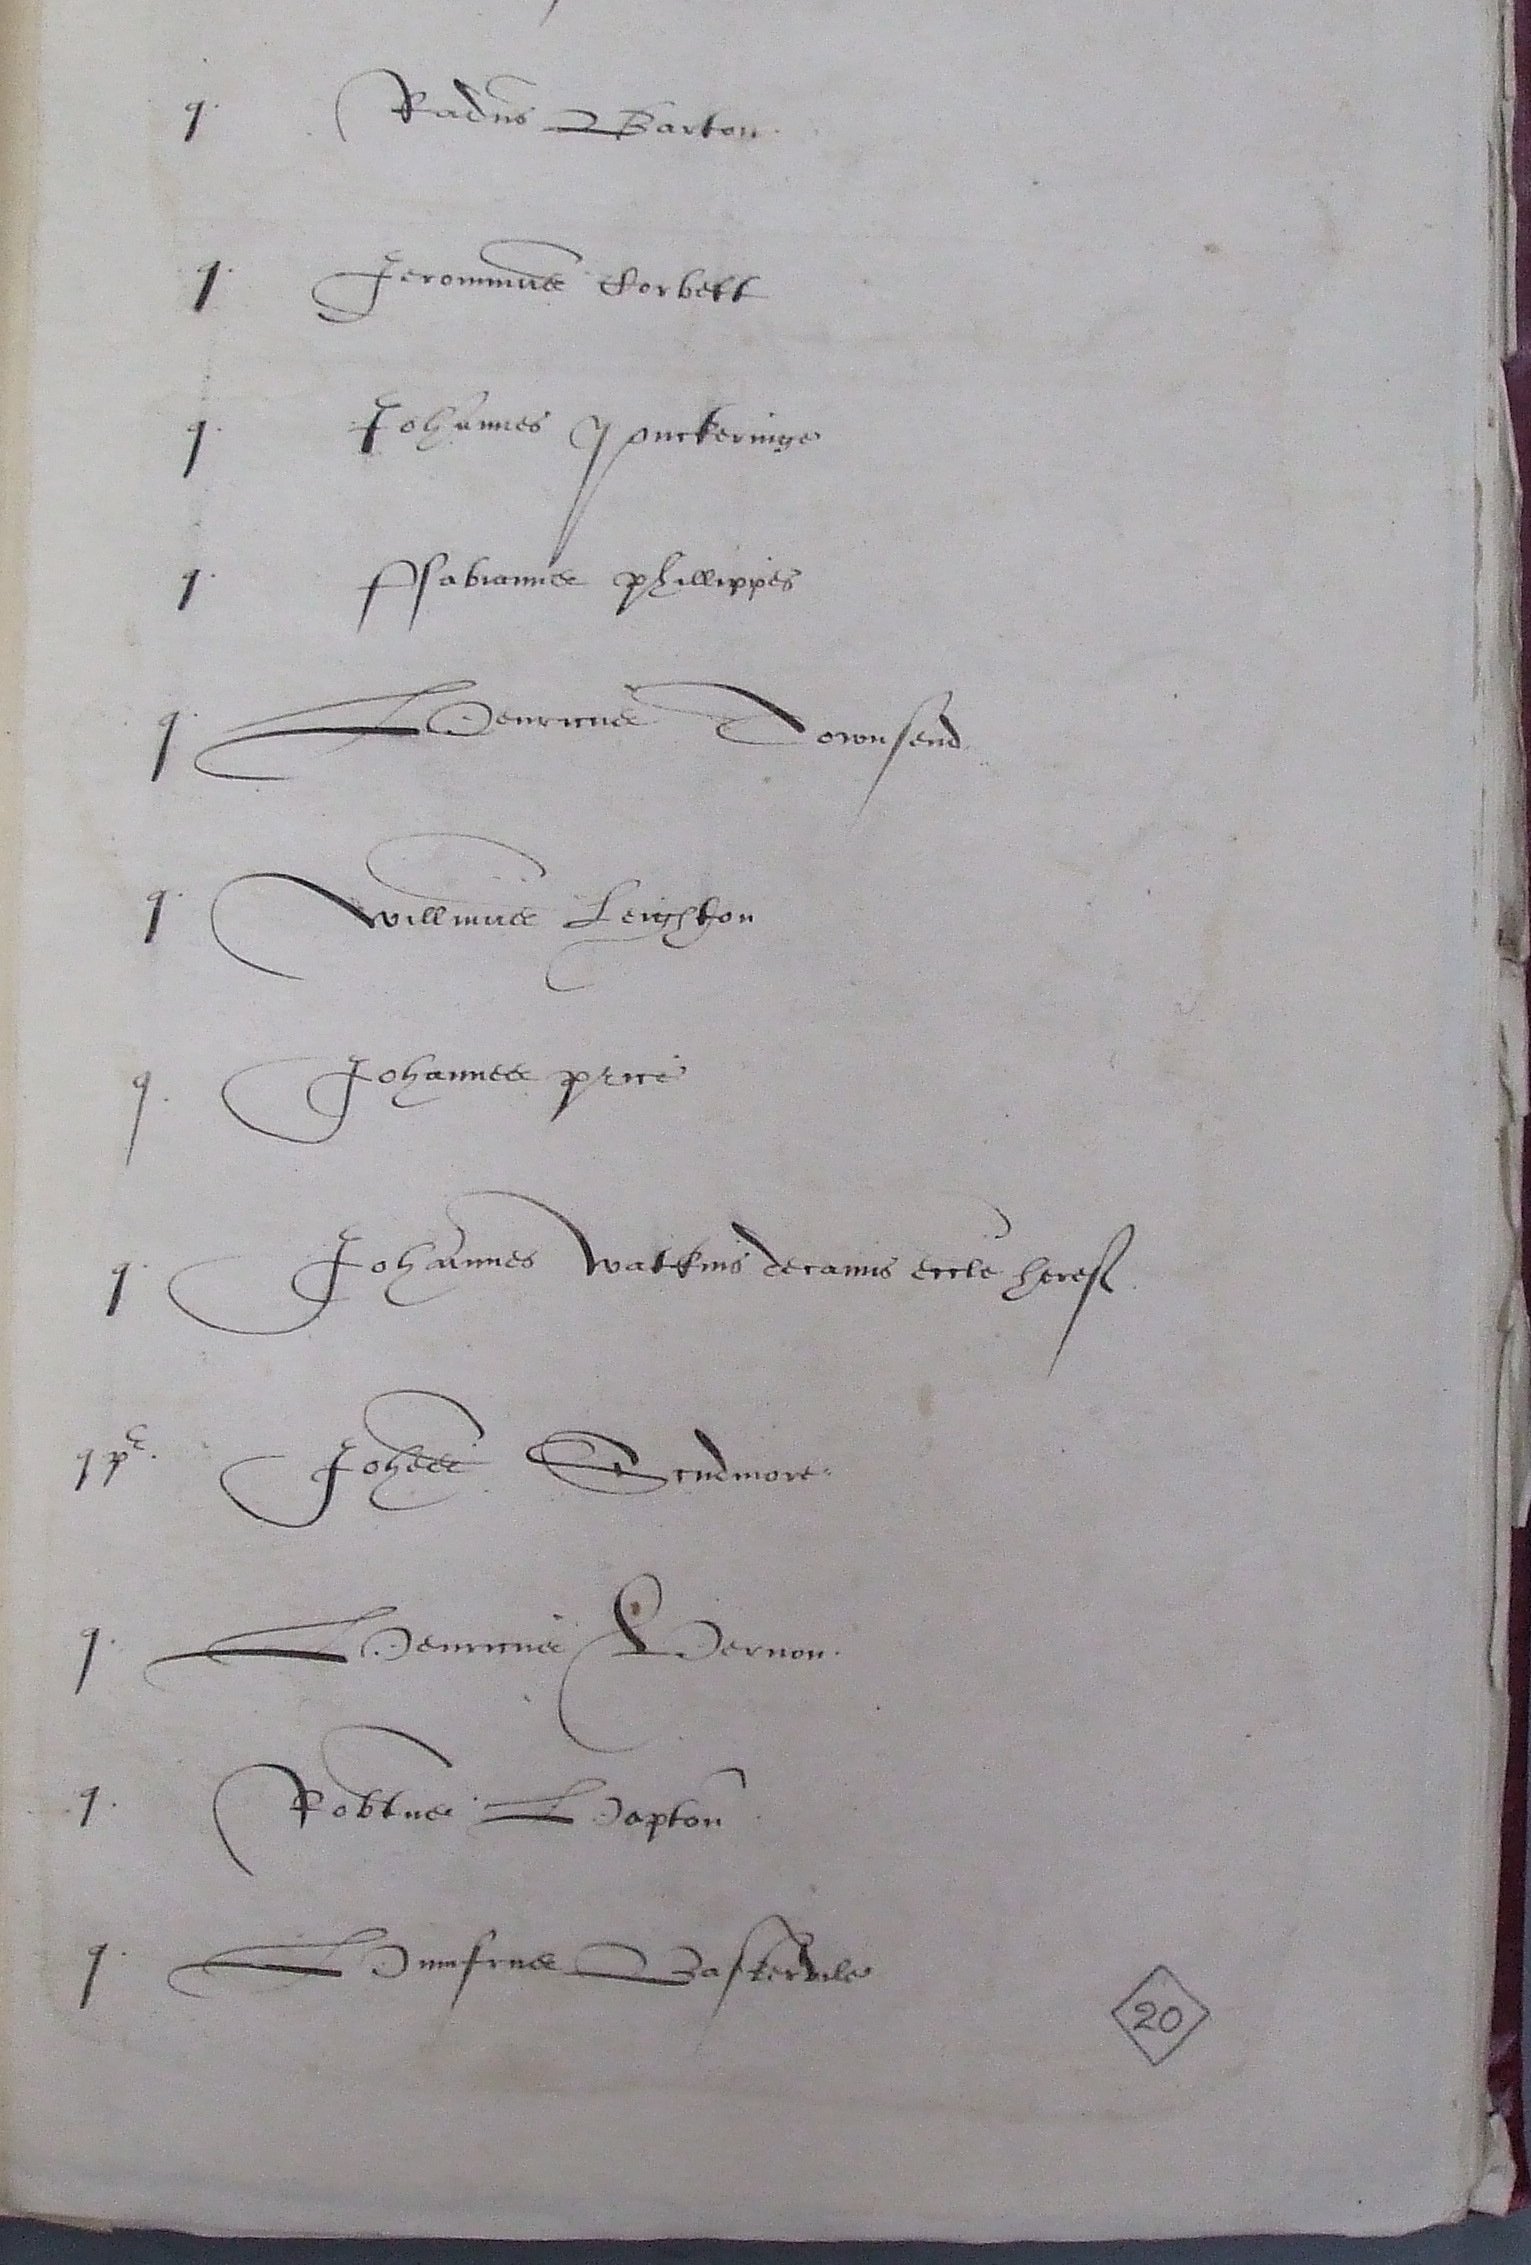 q. Radus Barton.
q. Jeromimus Corbett
q. Johannes Puckeringe
q. ffabianus phillippes
q. Henricus Townsend
q. Willmus Leighton
q. Johannes price
q. Johannes watkins decanus eccle heref.
q pc. Johes Scudmore.
q. Henricus Vernon.
q. Robtus Hopton
q. Humfrus Baskervile
20